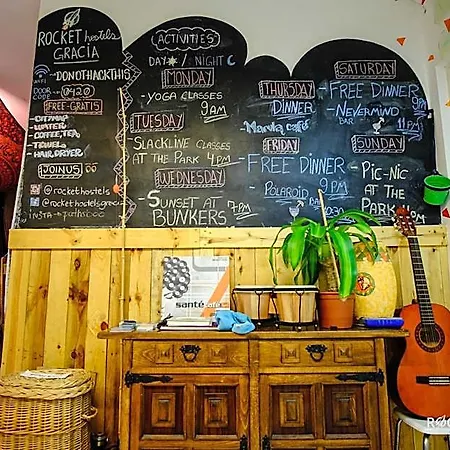 ROCKET hostels
GRACIA
WIFI DONOTHACKTHIS
DOOR CODE 0420
FREE-GRATIS
- CITYMAP
- WATER
- COFFEE, TEA
- TOWELS
- HAIR DRYER
JOIN US
@rockethostels
@rockethostelsgracia
ACTIVITIES
DAY NIGHT
MONDAY
- YOGA CLASSES
9AM
TUESDAY
SLACKLINE CLASSES
AT THE PARK 4PM
WEDNESDAY
- SUNSET AT
BUNKERS 7PM
THURSDAY
DINNER
FRIDAY
- FREE DINNER
9PM
POLAROID
BAR
SATURDAY
- FREE DINNER
9PM
- NEVERMIND
BAR 11PM
SUNDAY
- PIC-NIC
AT THE
PARK
santé café